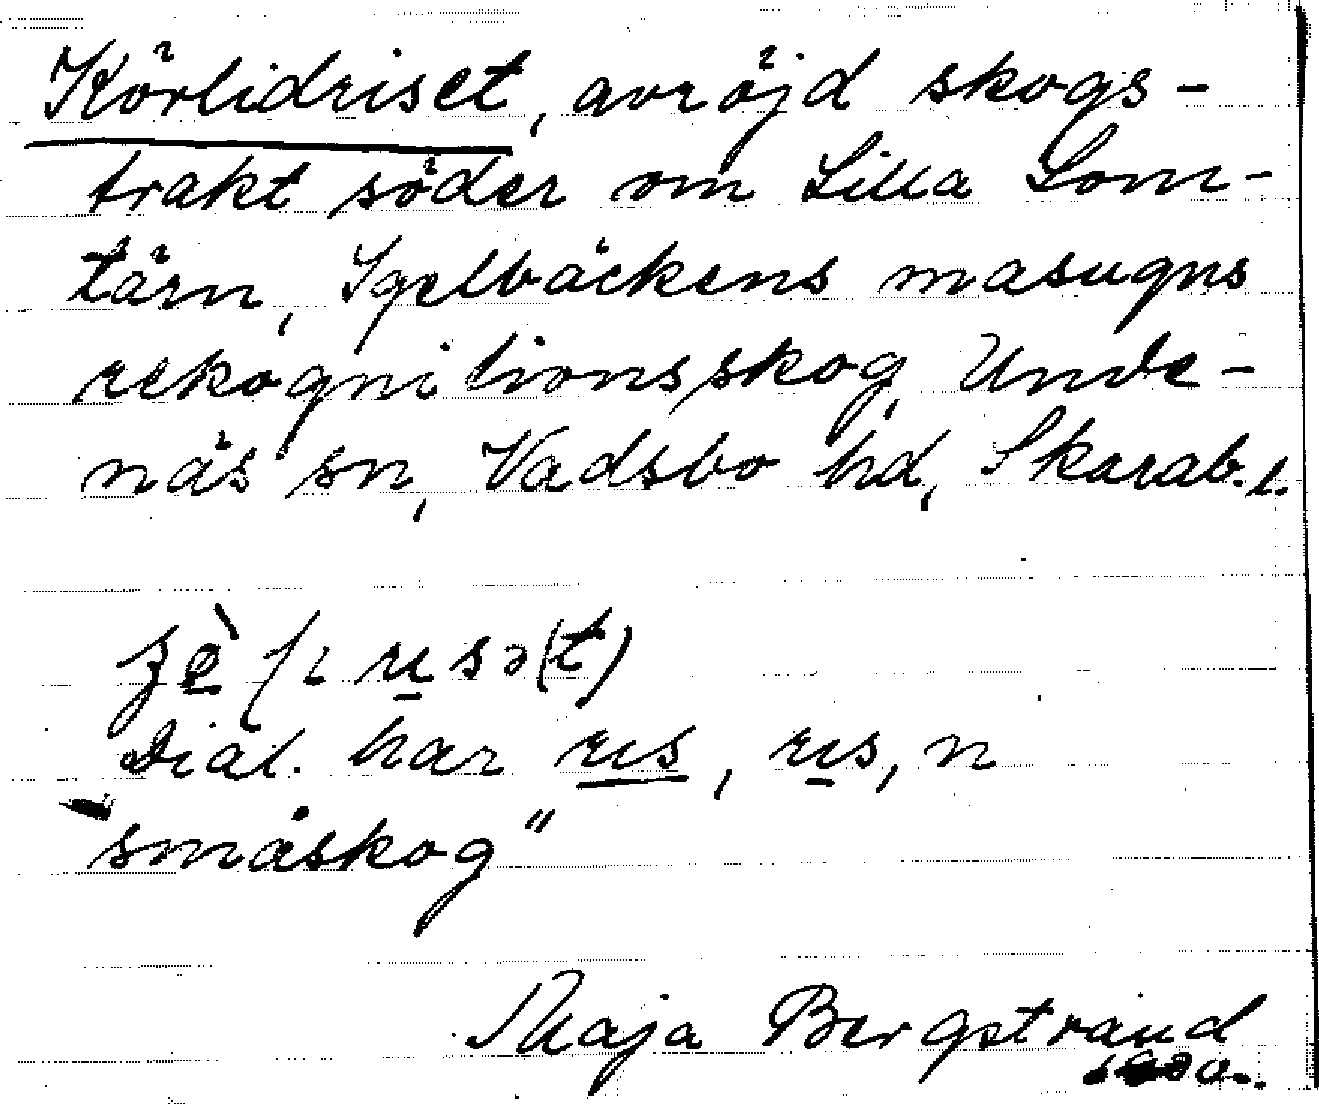 Körlidriset, avröjd skogs-
trakt söder om Lilla Lom-
tärn, Igelbäckens masugns
rekognitionsskog, Unde-
näs sn, Vadsbo hd, Skarab. l.
Dial. har rus, rus, n
småskog"
Maja Bergstrand